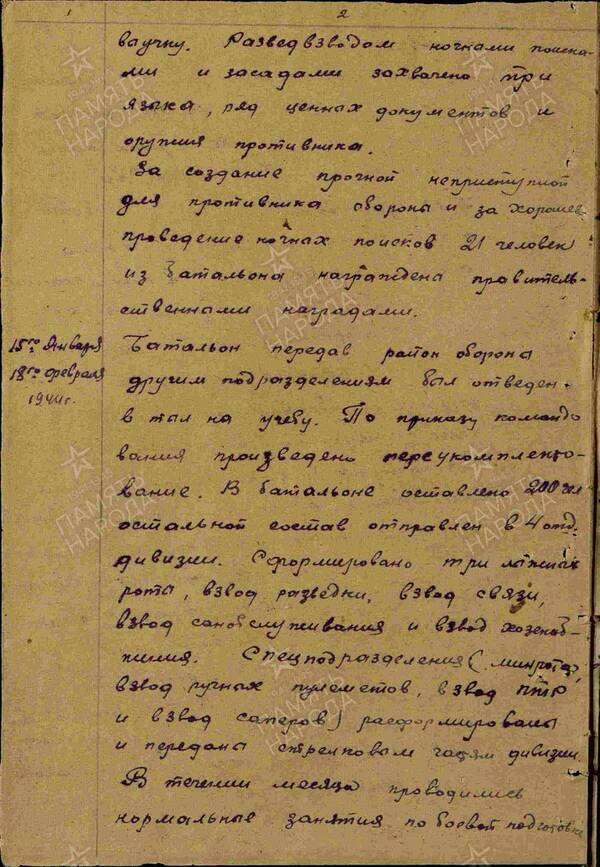 1 2
выучку. Разведвзводом ночными поиска-
ми и засадами захвачено три
языка, ряд ценных документов и
оружия противника.
За создание прочной неприступной
для противника обороны и за хорошее
проведение ночных поисков 21 человек
из батальона награждена правитель-
ственными наградами.
15го Января Батальон передав район обороны
18го февраля другим подразделениям был отведен
1944г. в тыл на учебу. По приказу командо
вания произведено переукомплекто-
вание. В батальоне оставлено 200 чел
остальной состав отправлен в 4 отд.
дивизии. Сформировано три лыжных
роты, взвод разведки, взвод связи,
взвод санобслуживания и взвод хозснаб-
жения. Спецподразделения (минрота,
взвод ручных пулеметов, взвод ПТР
и взвод саперов) расформированы
и переданы стрелковым частям дивизии.
В течении месяца проводились
нормальные занятия по боевой подготовке
ПАМЯТЬ
НАРОДА